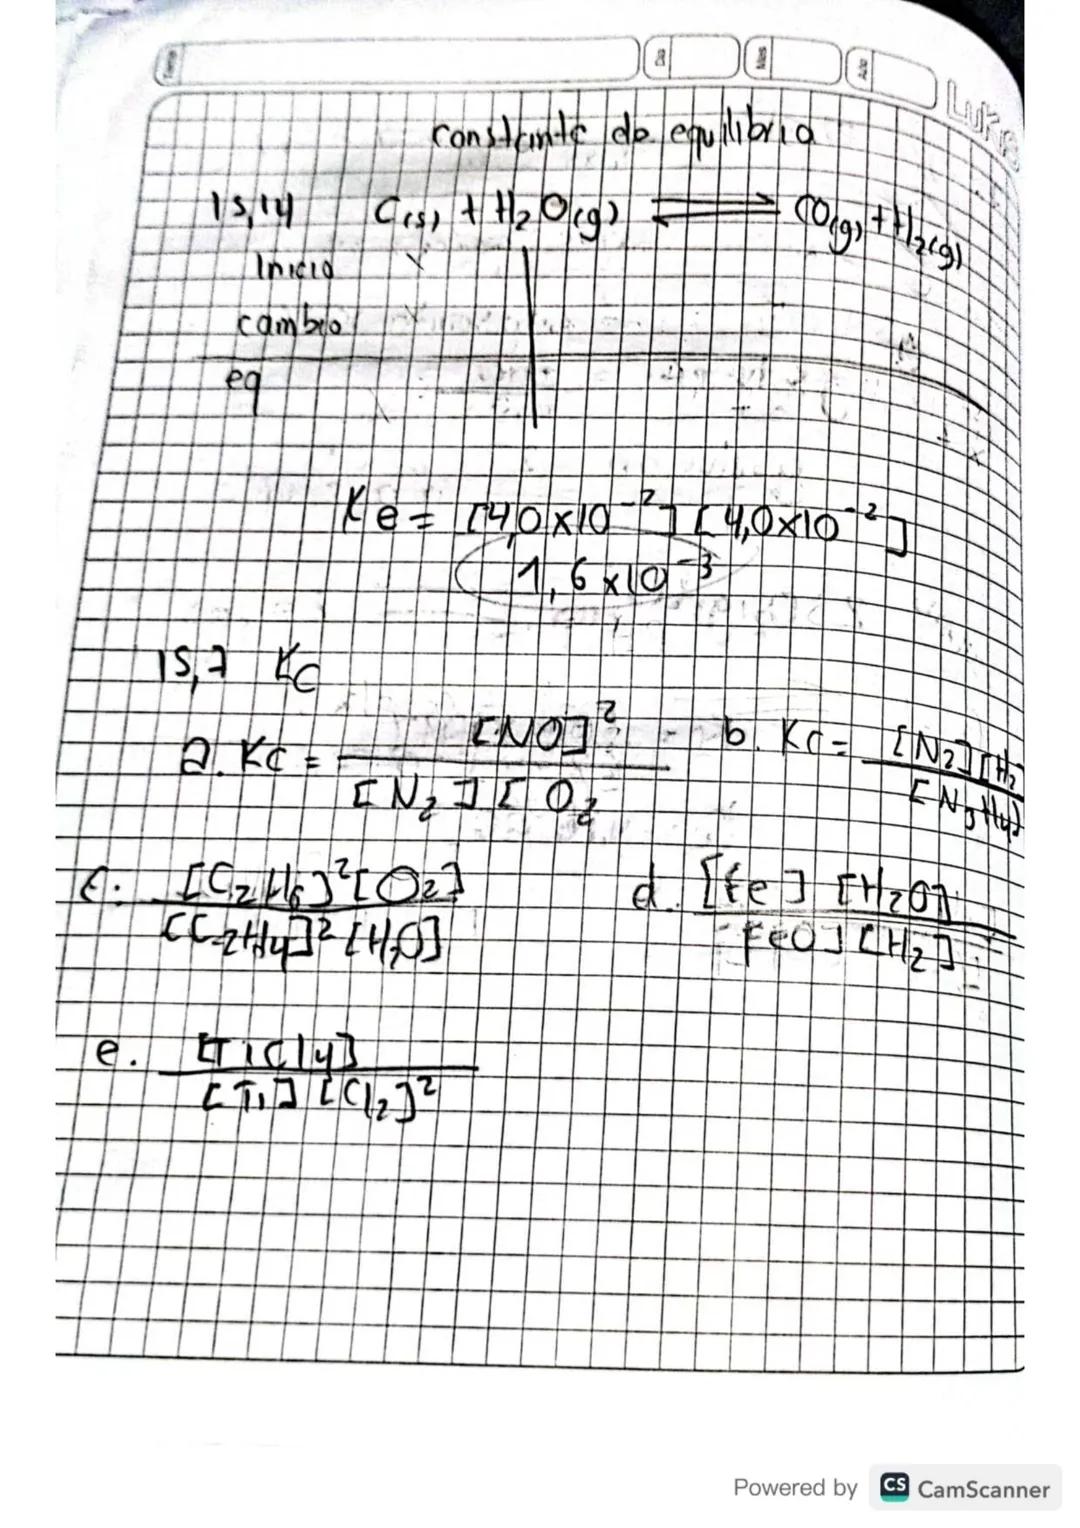 Tema Dia Mes Año
LUK
constante de equilibrio
15,14 C(s) + H₂O(g) ⇌ CO(g) + H₂(g)
Inicio
cambio
eq
Ke = [4,0x10⁻²] [4,0x10⁻²]
1,6x10⁻³
15,7 Kc
a. Kc = [NO]² / [N₂] [O₂ b. Kc = [N₂][H₂ / [N₃H₄]
c. [C₂H₆]²[O₂] / [C₂H₄]² [H₂O] d. [Fe] [H₂O] / FeO] [H₂]
e. [TiCl₄] / [Ti] [Cl₂]²
Powered by CS CamScanner